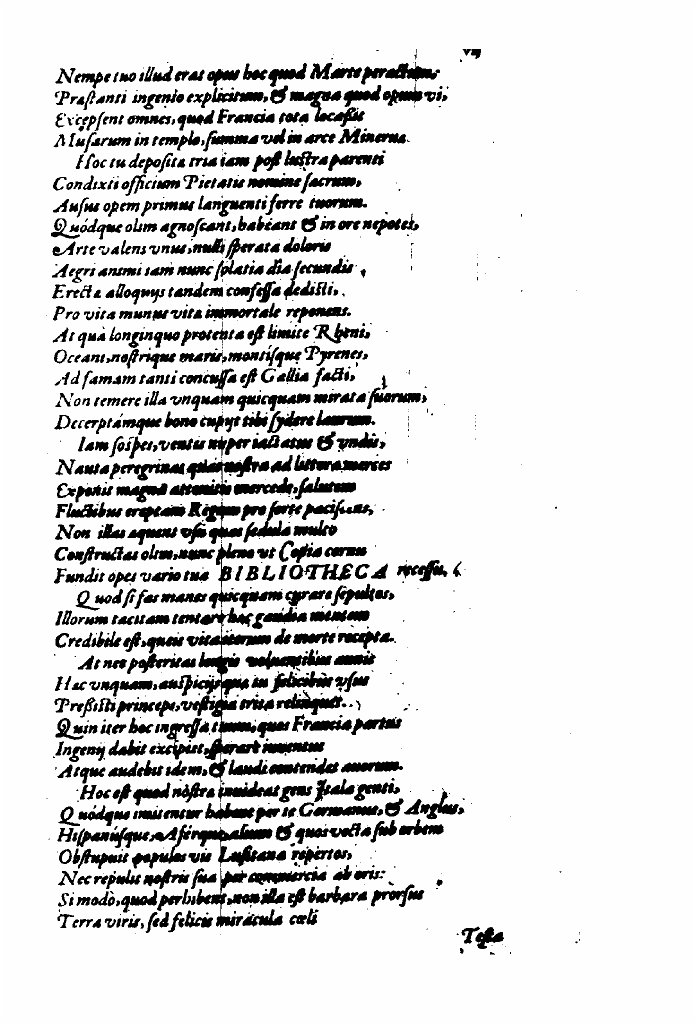 vij
Nempe tuo illud erat opus hoc quod Marte peractum,
Præstanti ingenio explicitum, & magna quod opum vi,
Excepsent omnes, quod Francia tota locassit
Musarum in templo, summa vel in arce Minerua.
Hoc tu deposita tria iam post lustra parenti
Condixti officium Pietatis nomine sacrum,
Ausus opem primus languenti ferre tuorum.
Quódque olim agnoscant, habeant & in ore nepotes,
Arte valens vnus, nulli sperata doloris
Aegri animi iam nunc solatia dia secundis
Erecta alloquijs tandem confessa dedisti,
Pro vita munus vita immortale reponens.
At quà longinquo protenta est limite Rheni,
Oceani, nostrique maris, montisque Pyrenes,
Ad famam tanti concussa est Gallia facti,
Non temere illa vnquam quicquam mirata suorum,
Decerptámque bono cupijt tibi sydere laurum.
Iam sospes, ventis nuper iactatus & vndis,
Nauta peregrinas quas nostra ad littora merces
Exponis magna mercede, salutem
Fluctibus ereptam Regum pro sorte
Non illas aquent vsu quas sedula multo
Constructas olim, nunc pleno vt Copia cornu
Fundit opes vario tua BIBLIOTHECA recessu,
Quod si fas manes quicquam curare sepultos,
Illorum tacitam tentare hæc gaudia mentem
Credibile est, queis vita iterum de morte recepta.
At nec posteritas longis voluentibus annis
Hac vnquam, auspicijs qua tu felicibus vsus
Pressisti princeps, vestigia trita relinquet.
Quin iter hoc ingressa tuum, quos Francia partus
Ingenij dabit excipiet, sperare iuuentus
Atque audebit idem, & laudi contendet auorum.
Hoc est quod nostræ inuideat gens Itala genti,
Quódque imitentur habens per te Germanus, & Anglus,
Hispanúsque, Aférque, alium & quos vecta sub orbem
Obstupuit populos vis Lusitana repertos,
Nec repulit nostris sua per commercia ab oris:
Si modò, quod perhibent, non illa est barbara prorsus
Terra viris, sed felicis miracula cœli
Testa